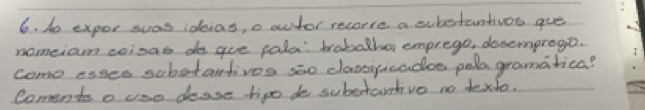 6. Ao expor suas ideias, o autor recorre a substantivos que
nomeiam coisas de que fala: trabalho, emprego, desemprego.
Como esses substantivos são classificados pela gramática?
Comente o uso desse tipo de substantivo no texto.